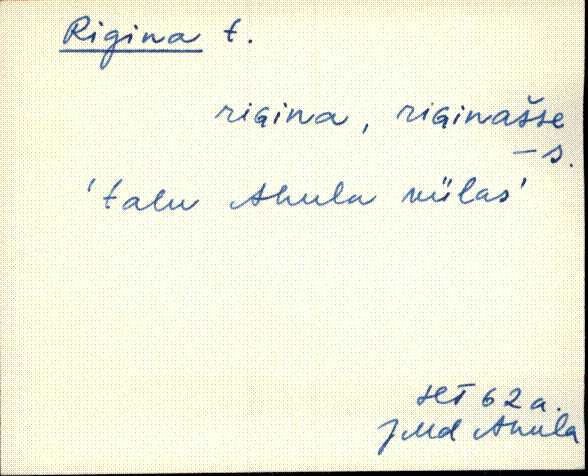 Rigina t.
rigina, riginašse
–s.
'talu Ahula külas'
62 a.
JMd Ahula